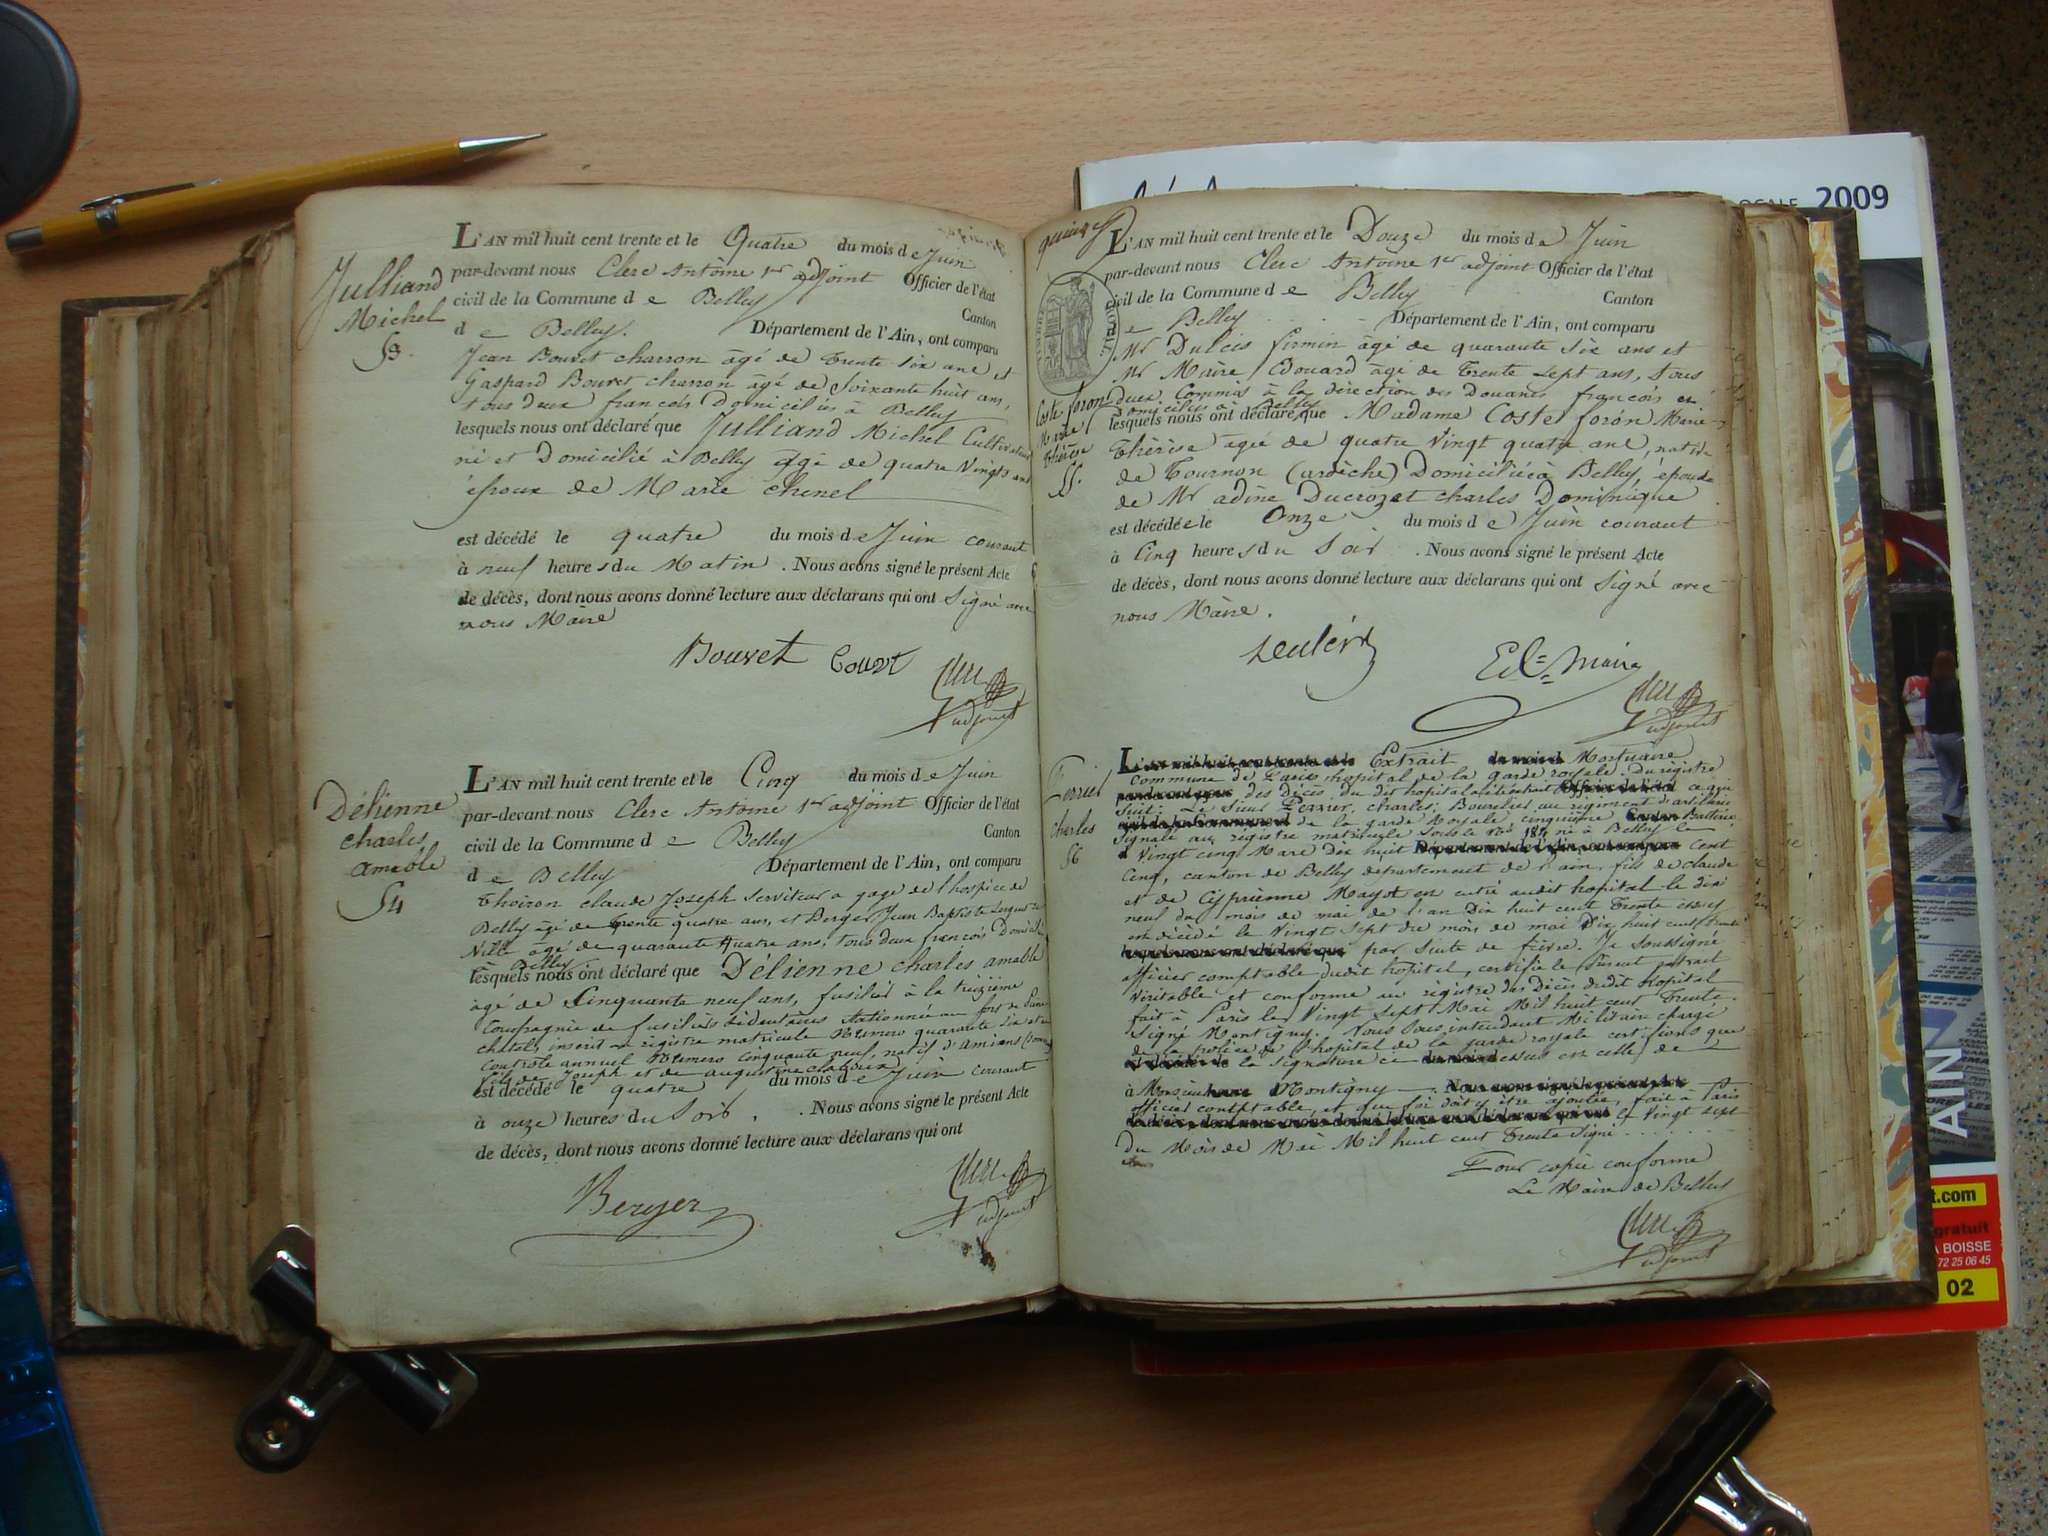 Julliand
Michel
53.
L'AN mil huit cent trente et le Quatre du mois de Juin
par-devant nous Clerc Antoine 1er adjoint Officier de l'état
civil de la Commune de Belley Canton
de Belley. Département de l'Ain, ont comparu
Jean Bouvet charron âgé de trente six ans et
Gaspard Bouvet charron âgé de Soixante huit ans,
tous deux françois Domiciliés à Belley
lesquels nous ont déclaré que Julliand Michel Cultivateur
né et Domicilié à Belley âgé de quatre Vingts ans
époux de Marie chenel
est décédé le quatre du mois de Juin courant
à neuf heures du Matin. Nous avons signé le présent Acte
de décès, dont nous avons donné lecture aux déclarans qui ont Signé avec
nous Maire
Bouvet
adjoint
Délienne
charles
amable
54
L'AN mil huit cent trente et le Cinq du mois de Juin
par-devant nous Clerc Antoine 1er adjoint Officier de l'état
civil de la Commune de Belley Canton
de Belley Département de l'Ain, ont comparu
Thoiron claude Joseph Serviteur a gage de l'hospice de
Belley âgé de trente quatre ans, et Berger Jean Baptiste Sergent de
Ville âgé de quarante quatre ans, tous deux françois Domiciliés
à Belley
lesquels nous ont déclaré que Délienne charles amable
âgé de Cinquante neuf ans, fusilier à la treizième
Compagnie de fusiliers Sédentaires Stationnée au fort de Pierre
chatel, inscrit au registre matricule Numero quarante six et au
contrôle annuel Numero cinquante neuf, natif d'Amiens (Somme)
fils de Joseph et de augustine
est décédé le quatre du mois de Juin courant
à onze heures du Soir. Nous avons signé le présent Acte
de décès, dont nous avons donné lecture aux déclarans qui ont
Berger
adjoint
quinze
Coste foron
Marie
thérèse
55.
L'AN mil huit cent trente et le Douze du mois de Juin
par-devant nous Clerc Antoine 1er adjoint Officier de l'état
civil de la Commune de Belley Canton
de Belley Département de l'Ain, ont comparu
Mr Dulcis firmin âgé de quarante six ans et
Mr Maire Edouard âgé de trente sept ans, tous
deux Commis à la direction des Douanes françois et
Domiciliés à Belley
lesquels nous ont déclaré que Madame Coste foron Marie
thérèse âgée de quatre Vingt quatre ans, native
de Tournon (ardèche) Domiciliée à Belley, épouse
de Mr adine Ducrozet charles Dominique
est décédée le Onze du mois de Juin courant
à Cinq heures du Soir. Nous avons signé le présent Acte
de décès, dont nous avons donné lecture aux déclarans qui ont Signé avec
nous Maire.
Ed. Maire
adjoint
Perrier
charles
56
L'AN mil huit cent trente et le Extrait du mois d Mortuaire
Commune de Paris hopital de la garde royale. Du registre
par-devant nous des Décès du dit hopital a été extrait Officier de l'état ce qui
Suit: Le Sieur Perrier, charles, Bourelier au régiment d'artillerie
civil de la Commune d de la garde Royale, cinquième Canton Batterie,
Signalé au registre matricule Sous le No 184 né à Belley le
Vingt cinq Mars Dix huit Département de l'Ain, ont comparu cent
Cinq, canton de Belley departement de l'ain, fils de claude
et de Cyprienne Mayot est entré audit hopital le dix
neuf du mois de mai de l'an Dix huit cent trente et y
est décédé le Vingt Sept du mois de mai Dix huit cent trente
lesquels nous ont déclaré que par Suite de fièvre. Je Soussigné
officier comptable dudit hopital, certifie le Présent extrait
Véritable et conforme au registre des Décès dudit hopital
fait à Paris le Vingt Sept Mai Mil huit cent Trente.
Signé Montigny. Nous Sous intendant Militaire chargé
de la police de l'hopital de la garde royale certifions que
est décédé le la Signature ci du mois d dessus est celle de
à Monsieur heure Montigny Nous avons signé le présent Acte
officier comptable, et que foi doit y être ajoutée, fait à Paris
de décès, dont nous avons donné lecture aux déclarans qui ont le Vingt sept
du Mois de Mai Mil huit cent Trente Signé
Pour copie conforme
Le Maire de Belley
adjoint
LOCALE 2009
AIN
t.com
gratuit
A BOISSE
72 25 06 45
02